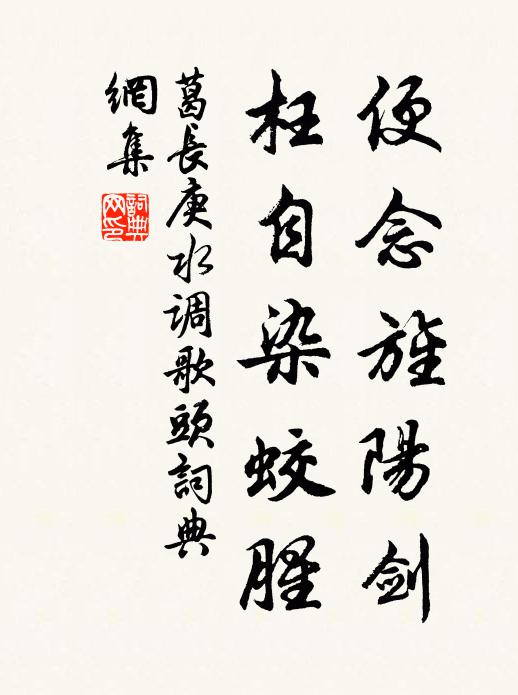 便念旌陽剑
枉自染蛟腥
葛長庚水调歌頭詞典
網集
詞典
网印